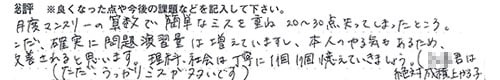 総評 ※良くなった点や今後の課題などを記入して下さい。
月度マンスリーの算数で簡単なミスを重ね 20〜30点失ってしまったところ。
ただ、確実に問題演習量は増えていますし、本人のやる気もあるため、
改善されると思います。理科・社会は丁寧に1個1個憶えていきましょう。君は
(ただ、うっかりミスが多いです) 絶対成績上がる子